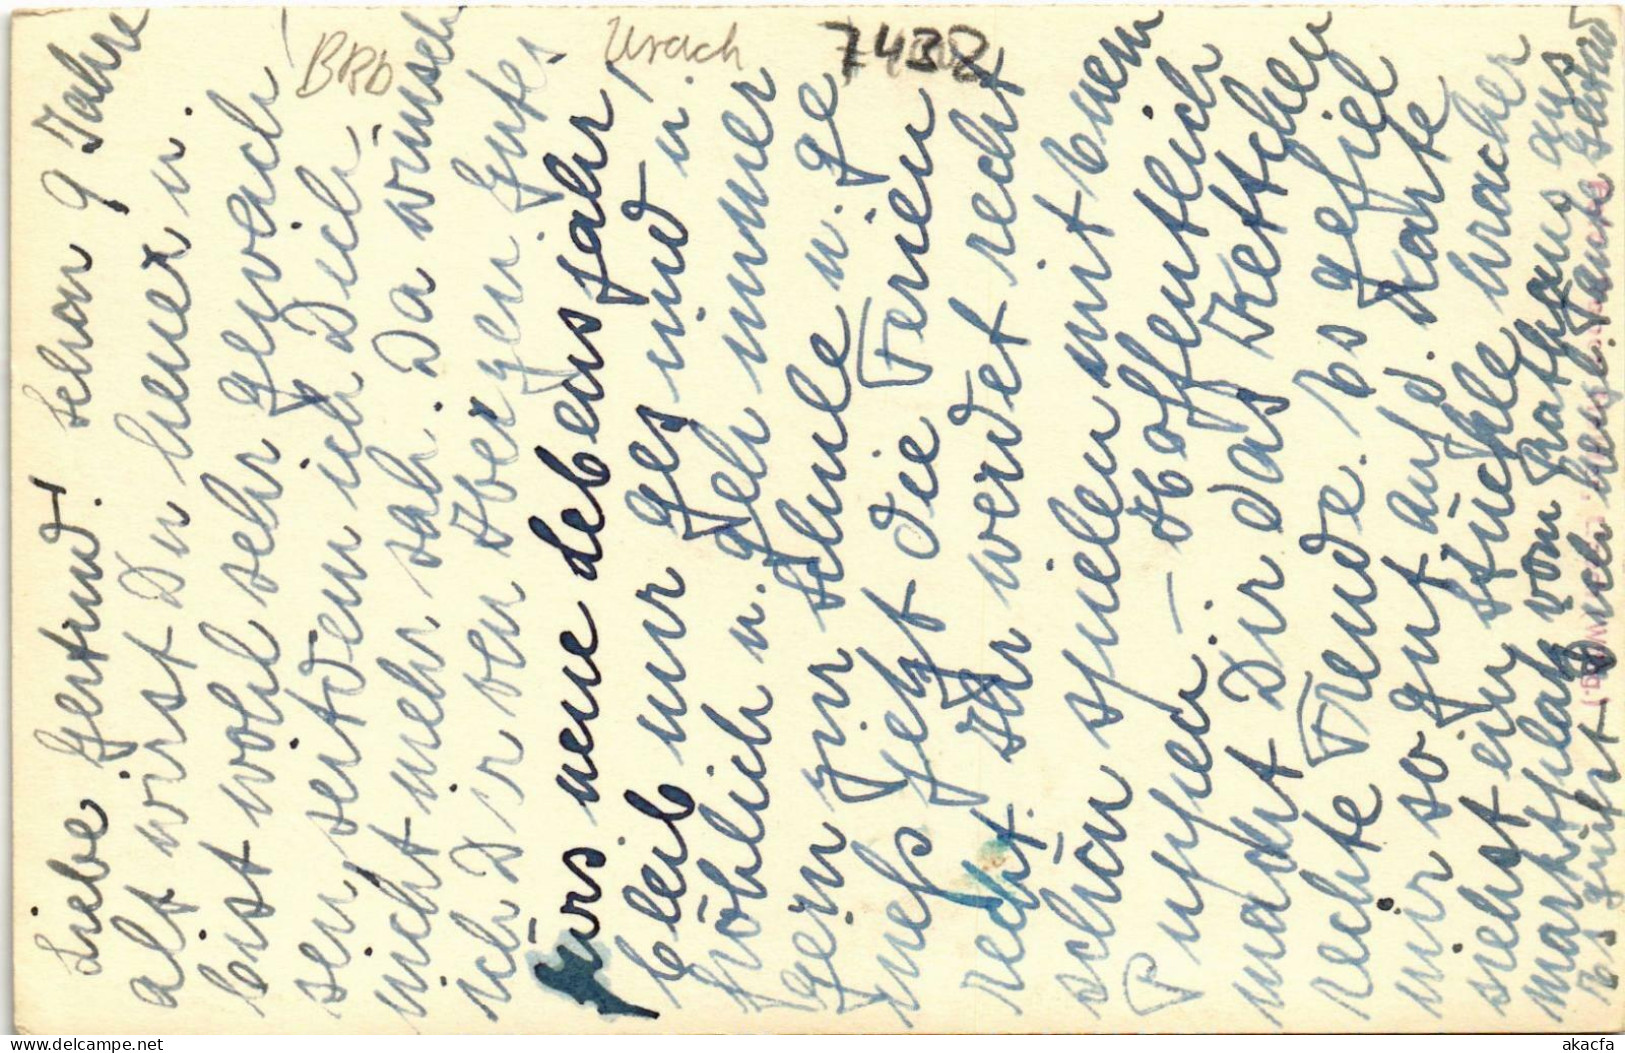 BRD
Urach
7438
Liebe Gertrud! Schon 9 Jahre
alt wirst Du heuer u.
bist wohl sehr gewach
sen, seitdem ich Dich
nicht mehr sah. Da wünsch
ich Dir von Herzen Gutes
fürs neue Lebensjahr,
bleib nur gesund u.
fröhlich u. geh immer
gern zur Schule u. ge
nieß jetzt die Ferien
recht. Ihr werdet recht
schön spielen mit Euern
Puppen. – Hoffentlich
macht Dir das Kettchen
rechte Freude. Es gefiel
mir so gut. Auf d. Karte
siehst ein Stückle Uracher
Marktplatz vom Rathaus aus
Es grüßt Dich herzl. Tante
akacfa